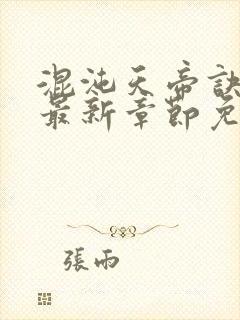 混沌天帝訣
最新章節免
張雨